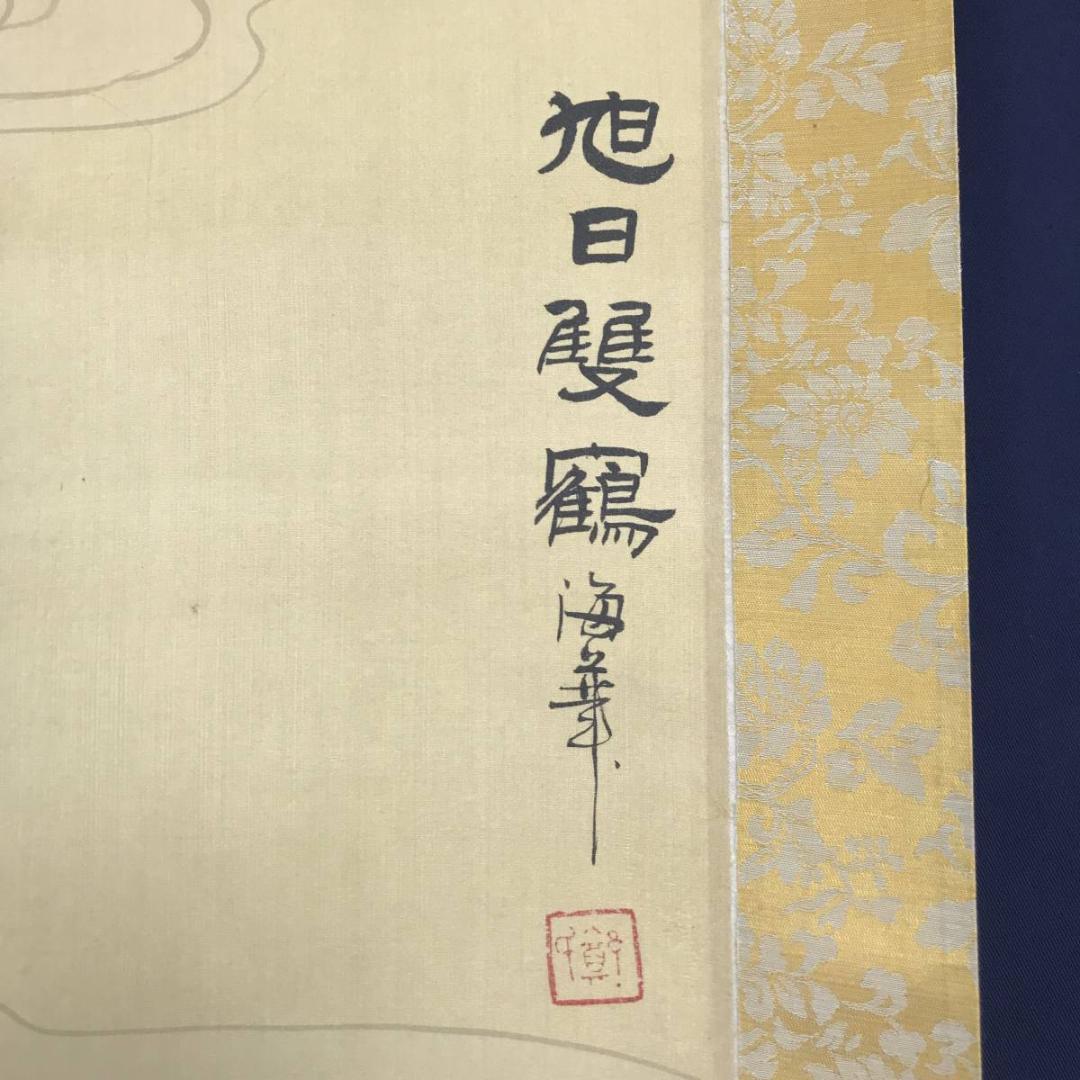 旭日雙鶴
海華